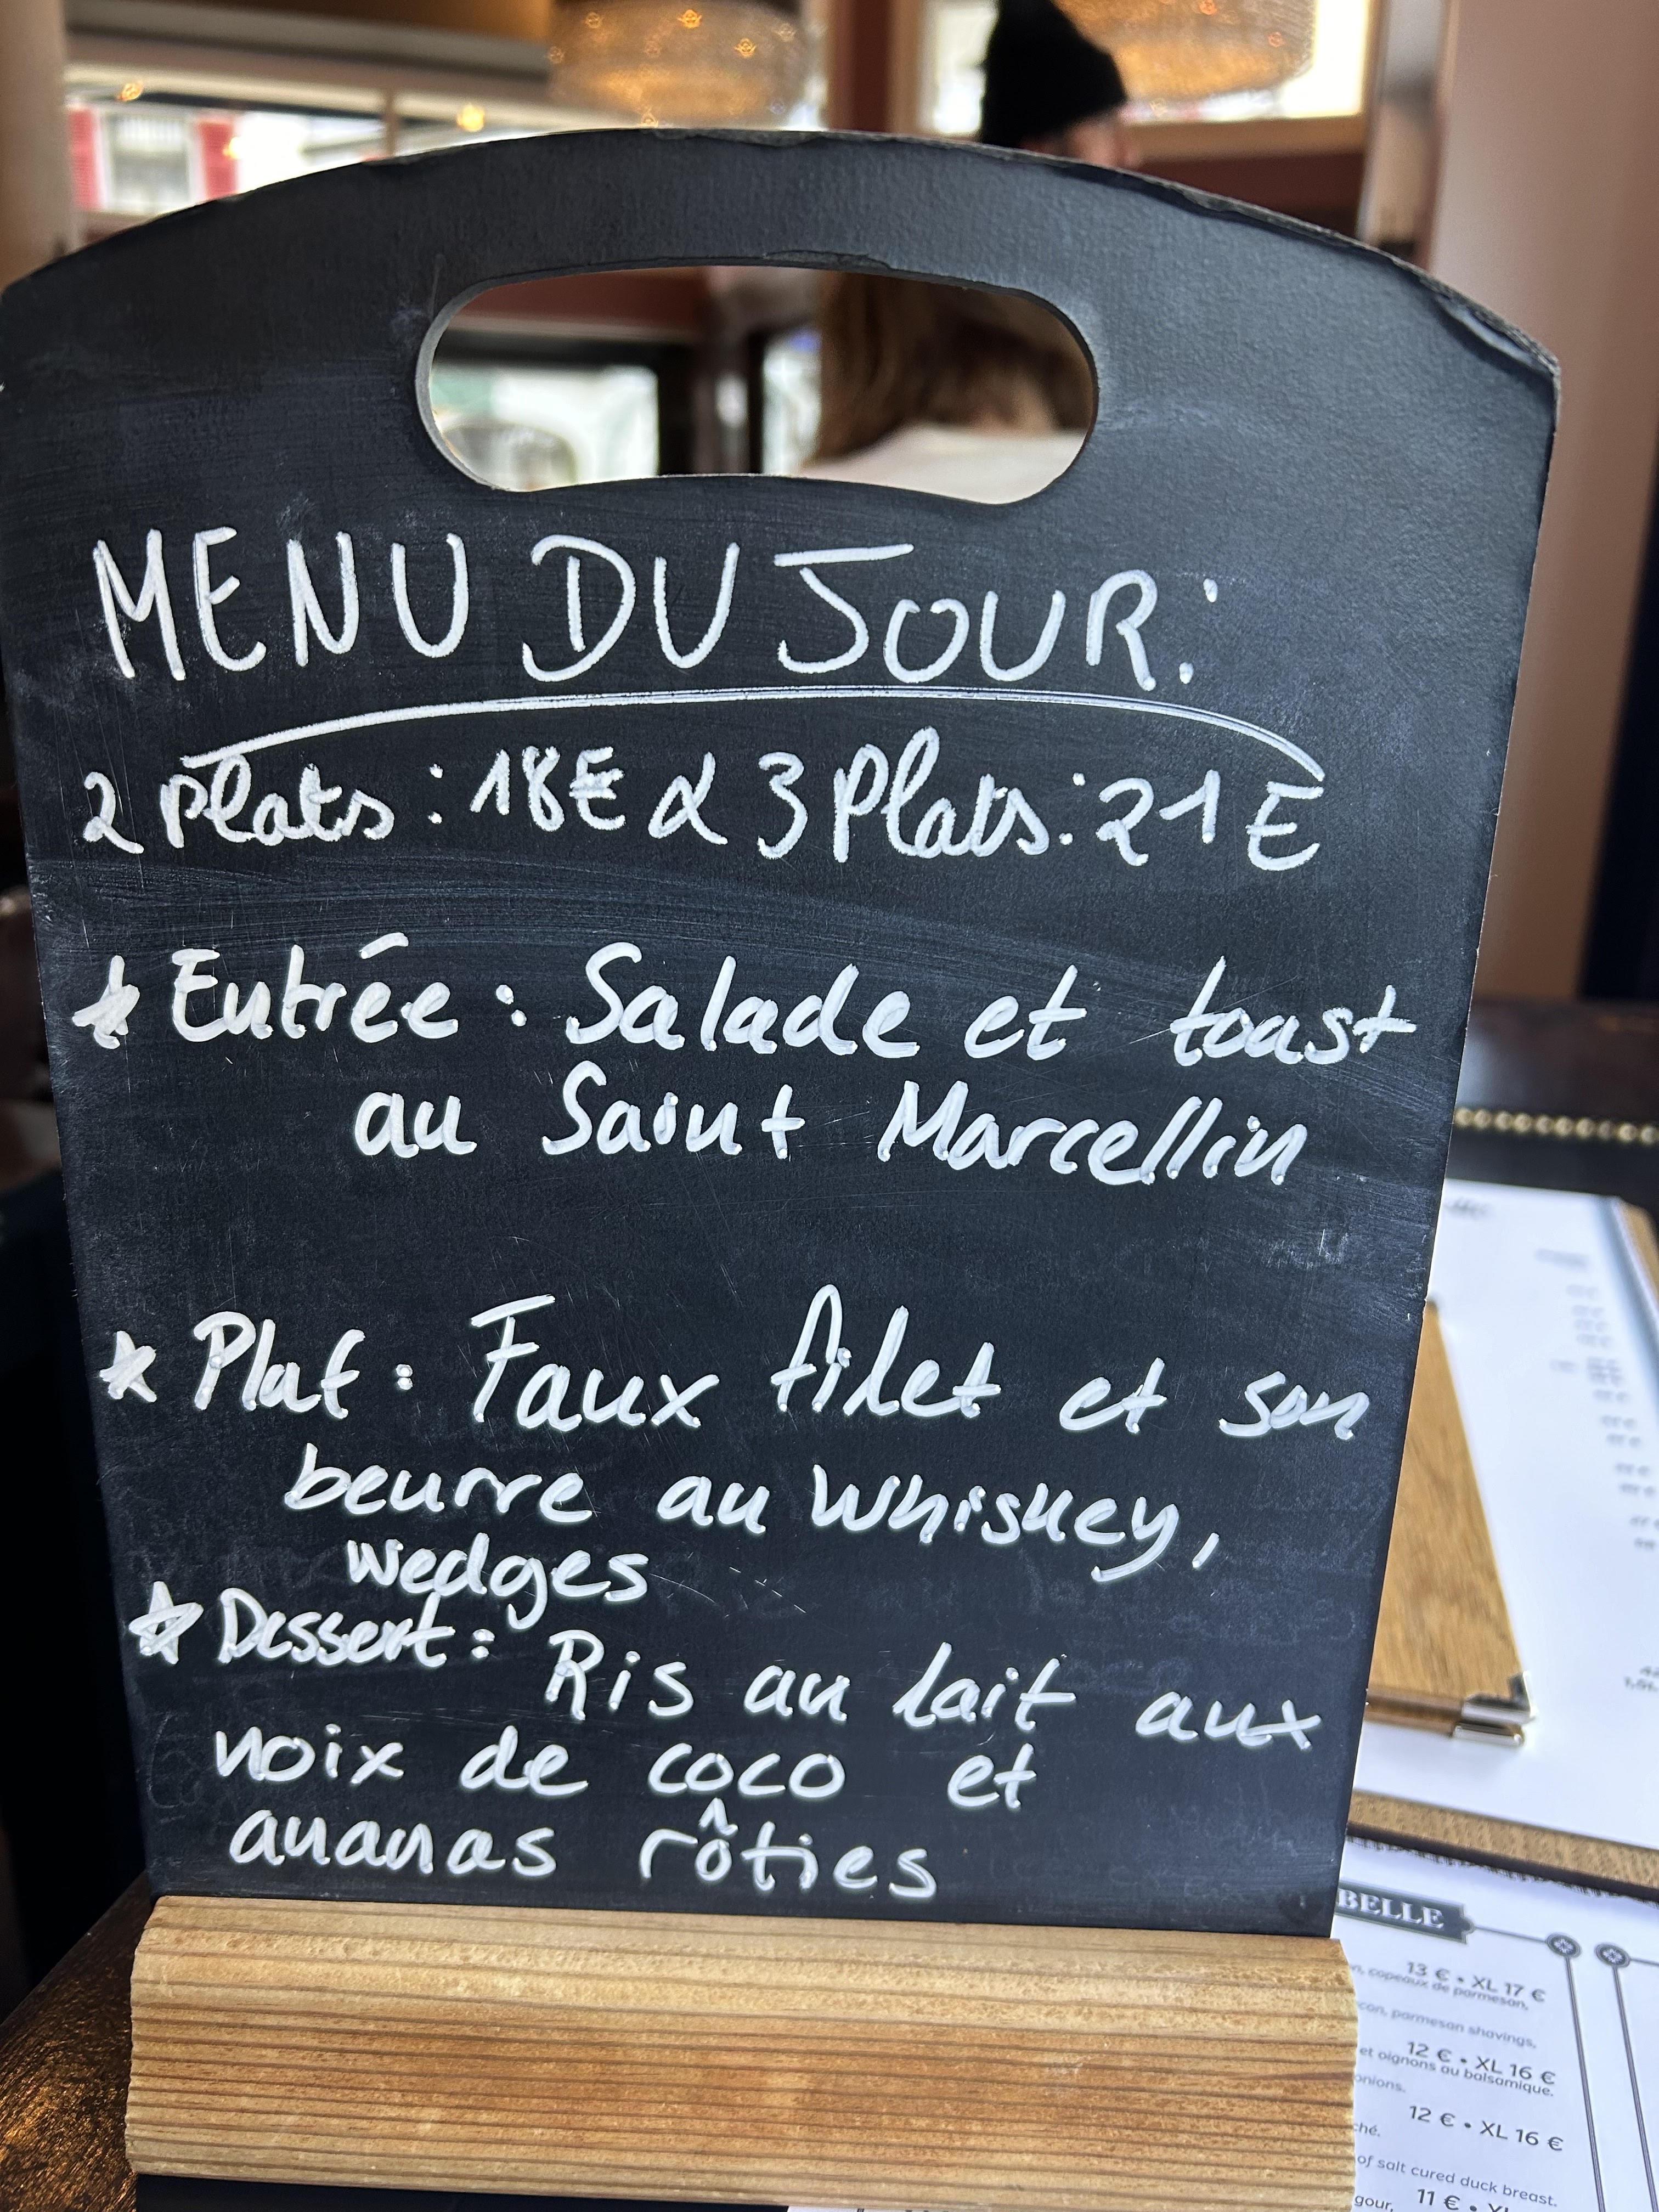 MENU DU JOUR:
2 plats : 18€ & 3 Plats : 21€
Entrée : Salade et toast
au Saint Marcellin
Plat : Faux filet et son
beurre au Whiskey,
wedges
Dessert : Ris au lait aux
noix de coco et
ananas rôties
BELLE
13 € • XL 17 €
copeaux de parmesan,
parmesan shavings,
12 € • XL 16 €
et oignons au balsamique.
12 € • XL 16 €
of salt cured duck breast.
11 €